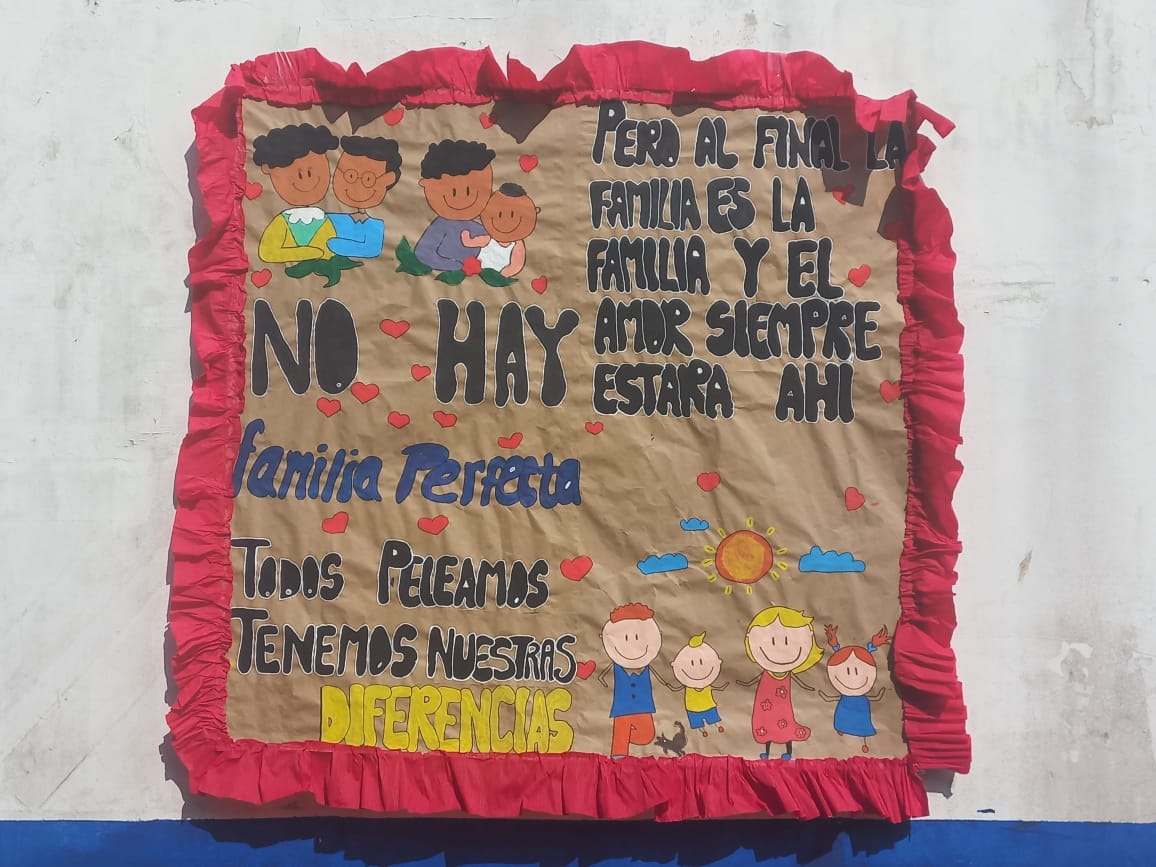 NO HAY
familia Perfecta
TODOS PELEAMOS
TENEMOS NUESTRAS
DIFERENCIAS
PERO AL FINAL LA
FAMILIA ES LA
FAMILIA Y EL
AMOR SIEMPRE
ESTARA AHI